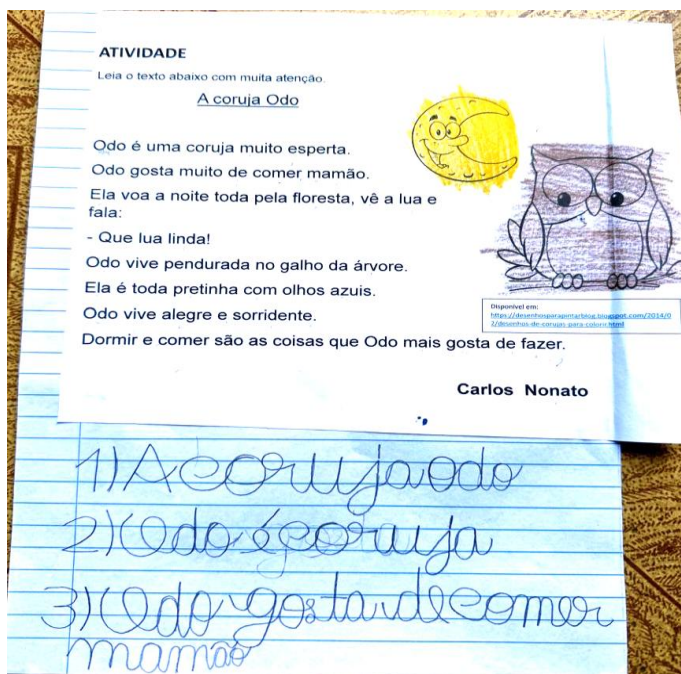 ATIVIDADE
Leia o texto abaixo com muita atenção.
A coruja Odo
Odo é uma coruja muito esperta.
Odo gosta muito de comer mamão.
Ela voa a noite toda pela floresta, vê a lua e
fala:
- Que lua linda!
Odo vive pendurada no galho da árvore.
Ela é toda pretinha com olhos azuis.
Odo vive alegre e sorridente.
Dormir e comer são as coisas que Odo mais gosta de fazer.
Disponível em:
https://desenhosparapintarblog.blogspot.com/2014/0
2/desenhos-de-corujas-para-colorir.html
Carlos Nonato
1) A coruja odo
2) Odo é coruja
3) Odo gosta de comer
mamão